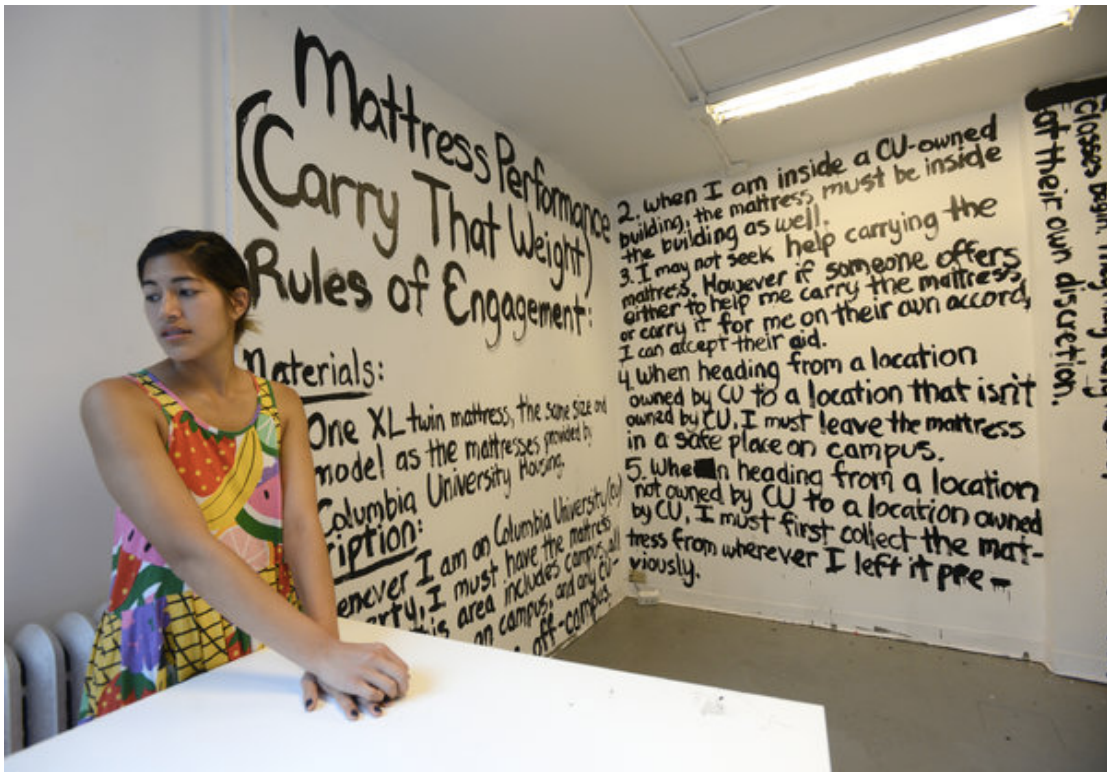 Mattress Performance
(Carry That Weight)
Rules of Engagement:
Materials:
One XL twin mattress, the same size and
model as the mattresses provided by
Columbia University Housing.
ription:
enever I am on Columbia University (CU)
erty, I must have the mattress
is area includes campus, all
on campus, and any CU-
off-campus.
2. When I am inside a CU-owned
building, the mattress must be inside
the building as well.
3. I may not seek help carrying the
mattress. However if someone offers
either to help me carry the mattress,
or carry it for me on their own accord,
I can accept their aid.
4. When heading from a location
owned by CU to a location that isn't
owned by CU, I must leave the mattress
in a safe place on campus.
5. When heading from a location
not owned by CU to a location owned
by CU, I must first collect the mat-
tress from wherever I left it pre-
viously.
Classes begin.
at their own discretion.